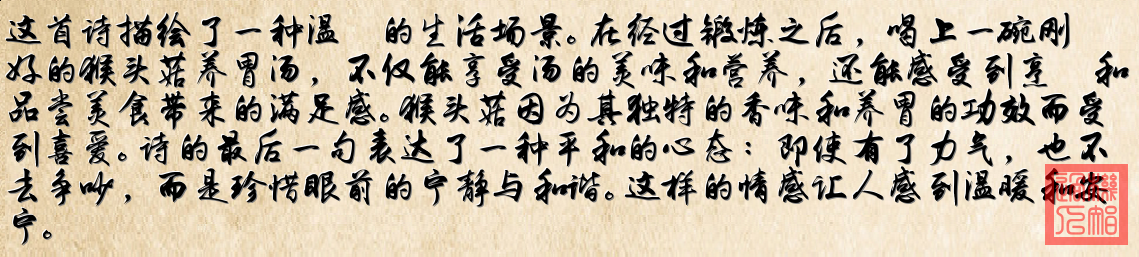 这首诗描绘了一种温 的生活场景。在经过锻炼之后，喝上一碗刚
好的猴头菇养胃汤，不仅能享受汤的美味和营养，还能感受到烹 和
品尝美食带来的满足感。猴头菇因为其独特的香味和养胃的功效而受
到喜爱。诗的最后一句表达了一种平和的心态：即使有了力气，也不
去争吵，而是珍惜眼前的宁静与和谐。这样的情感让人感到温暖和安
宁。